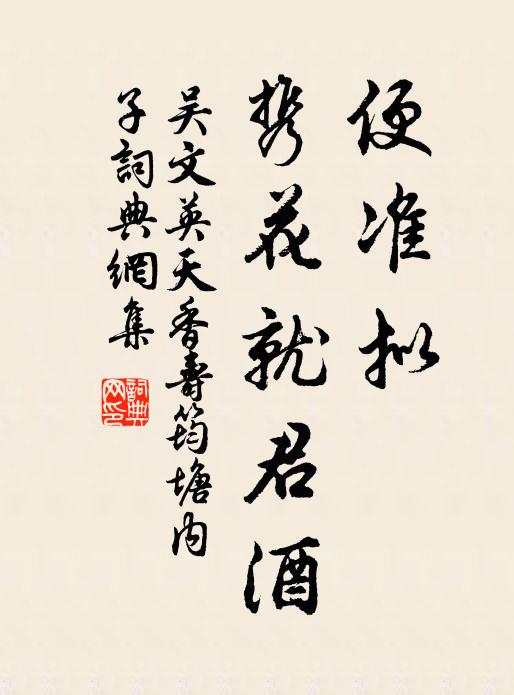 便准拟
携花就君酒
吴文英天香壽筠塘内
子詞典網集
詞典
网印